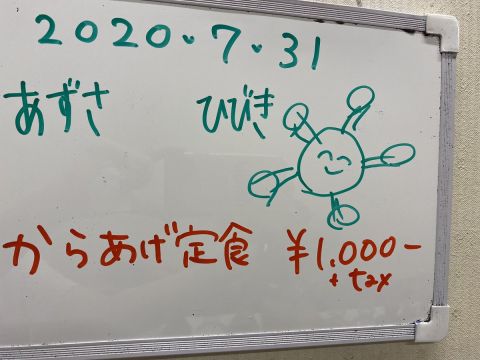 2020.7.31
あずさ ひびき
からあげ定食 ¥1,000-
+ tax